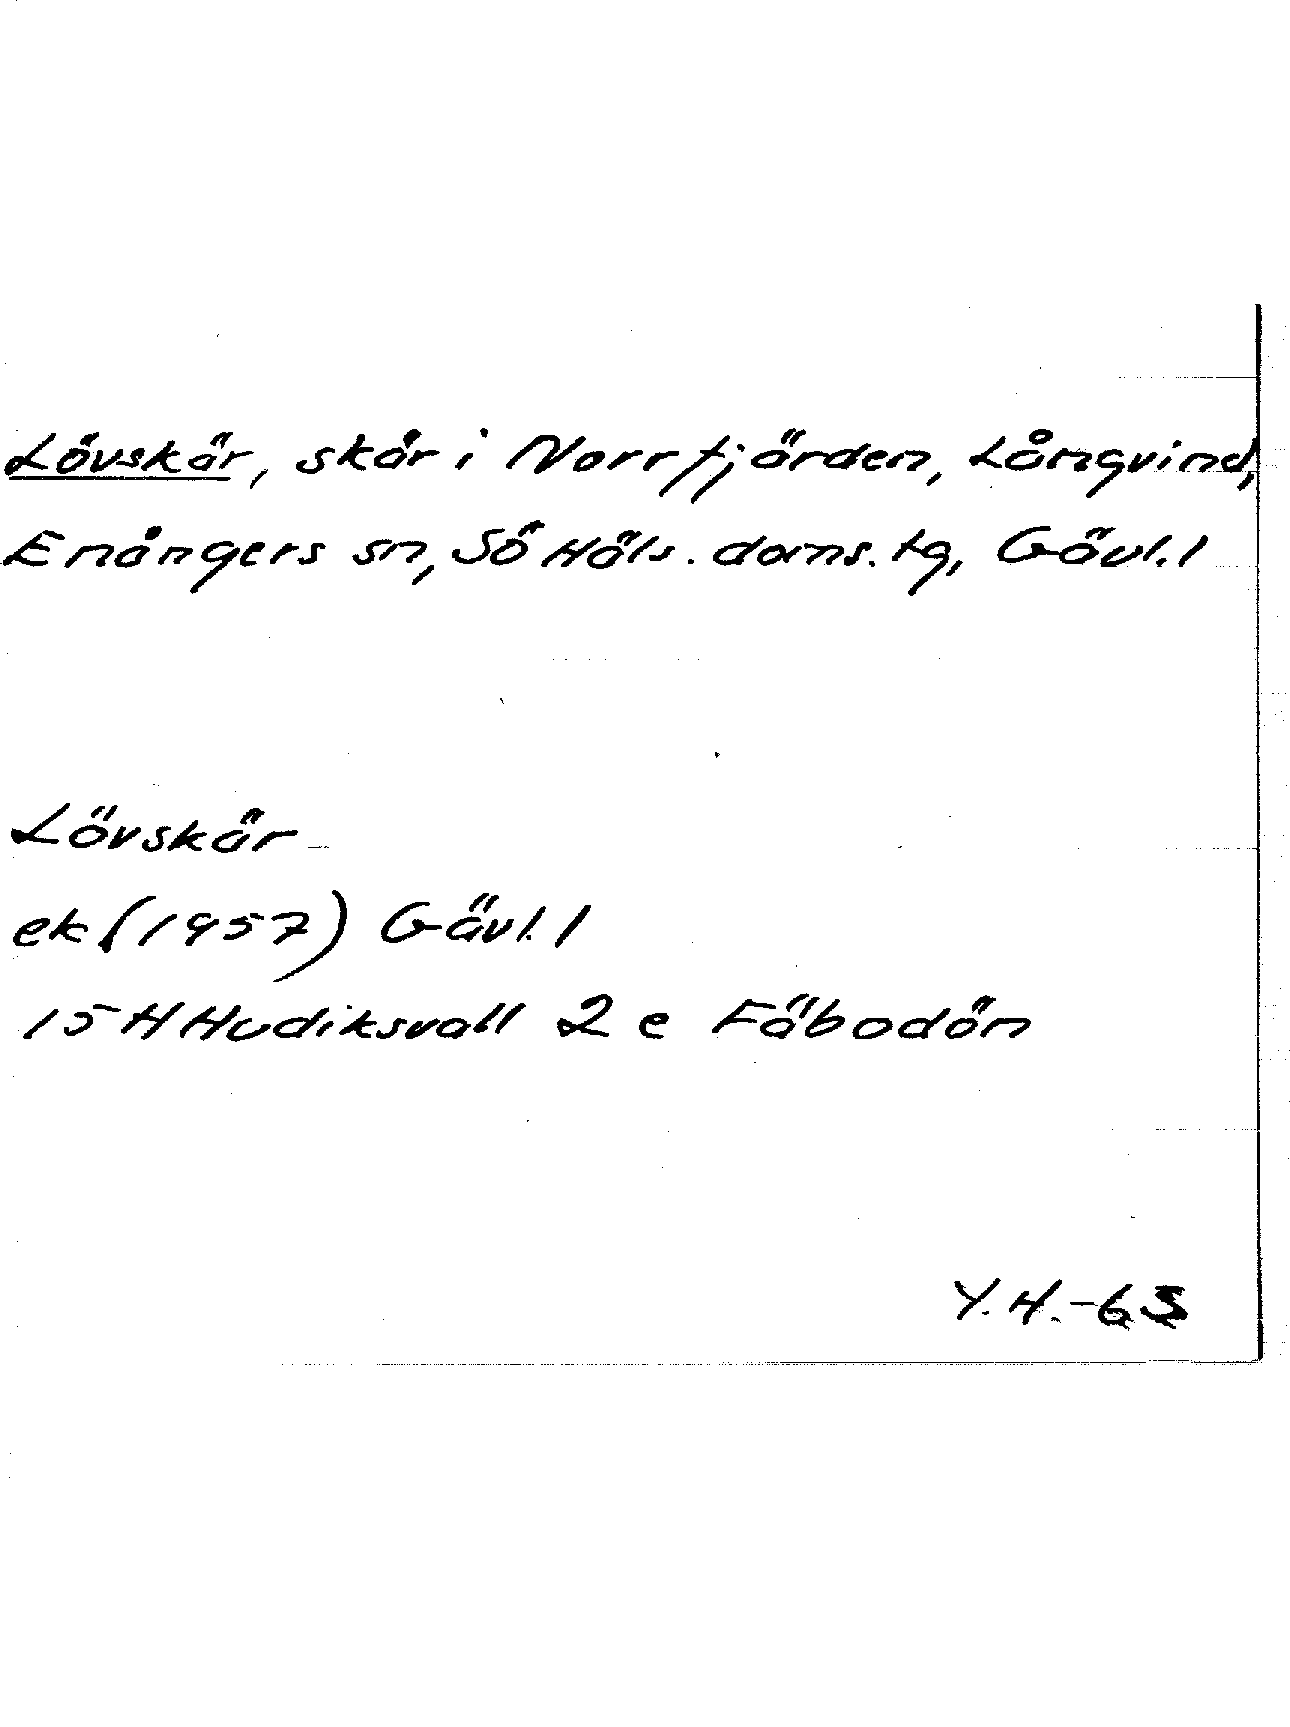 Lövskär, skär i Norrfjärden, Långvind,
Enångers sn, Sö Häls. doms. tg, Gävl. l
Lövskär
ek (1957) Gävl. l
15 H Hudiksvall 2 e Fäbodön
Y. H. -63